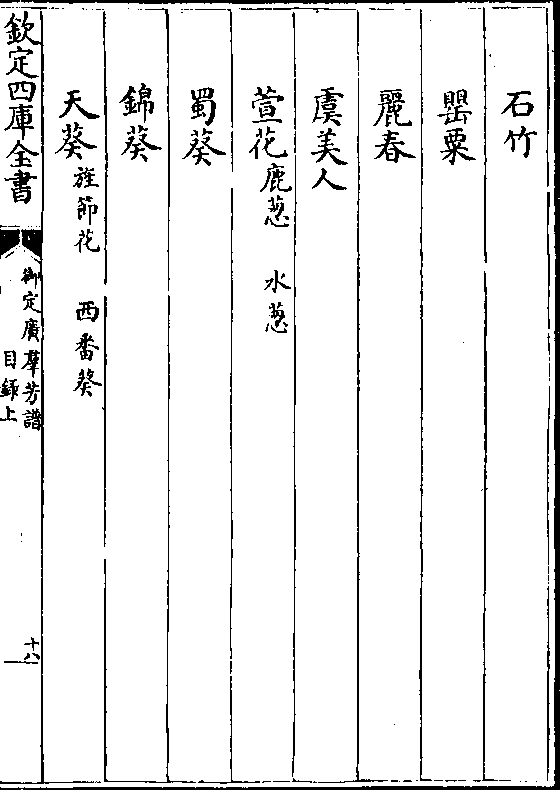 石竹
罌粟
麗春
虞美人
萱花鹿葱 水葱
蜀葵
錦葵
天葵旌節花 西番葵
欽定四庫全書
御定廣羣芳譜
目錄上
十八